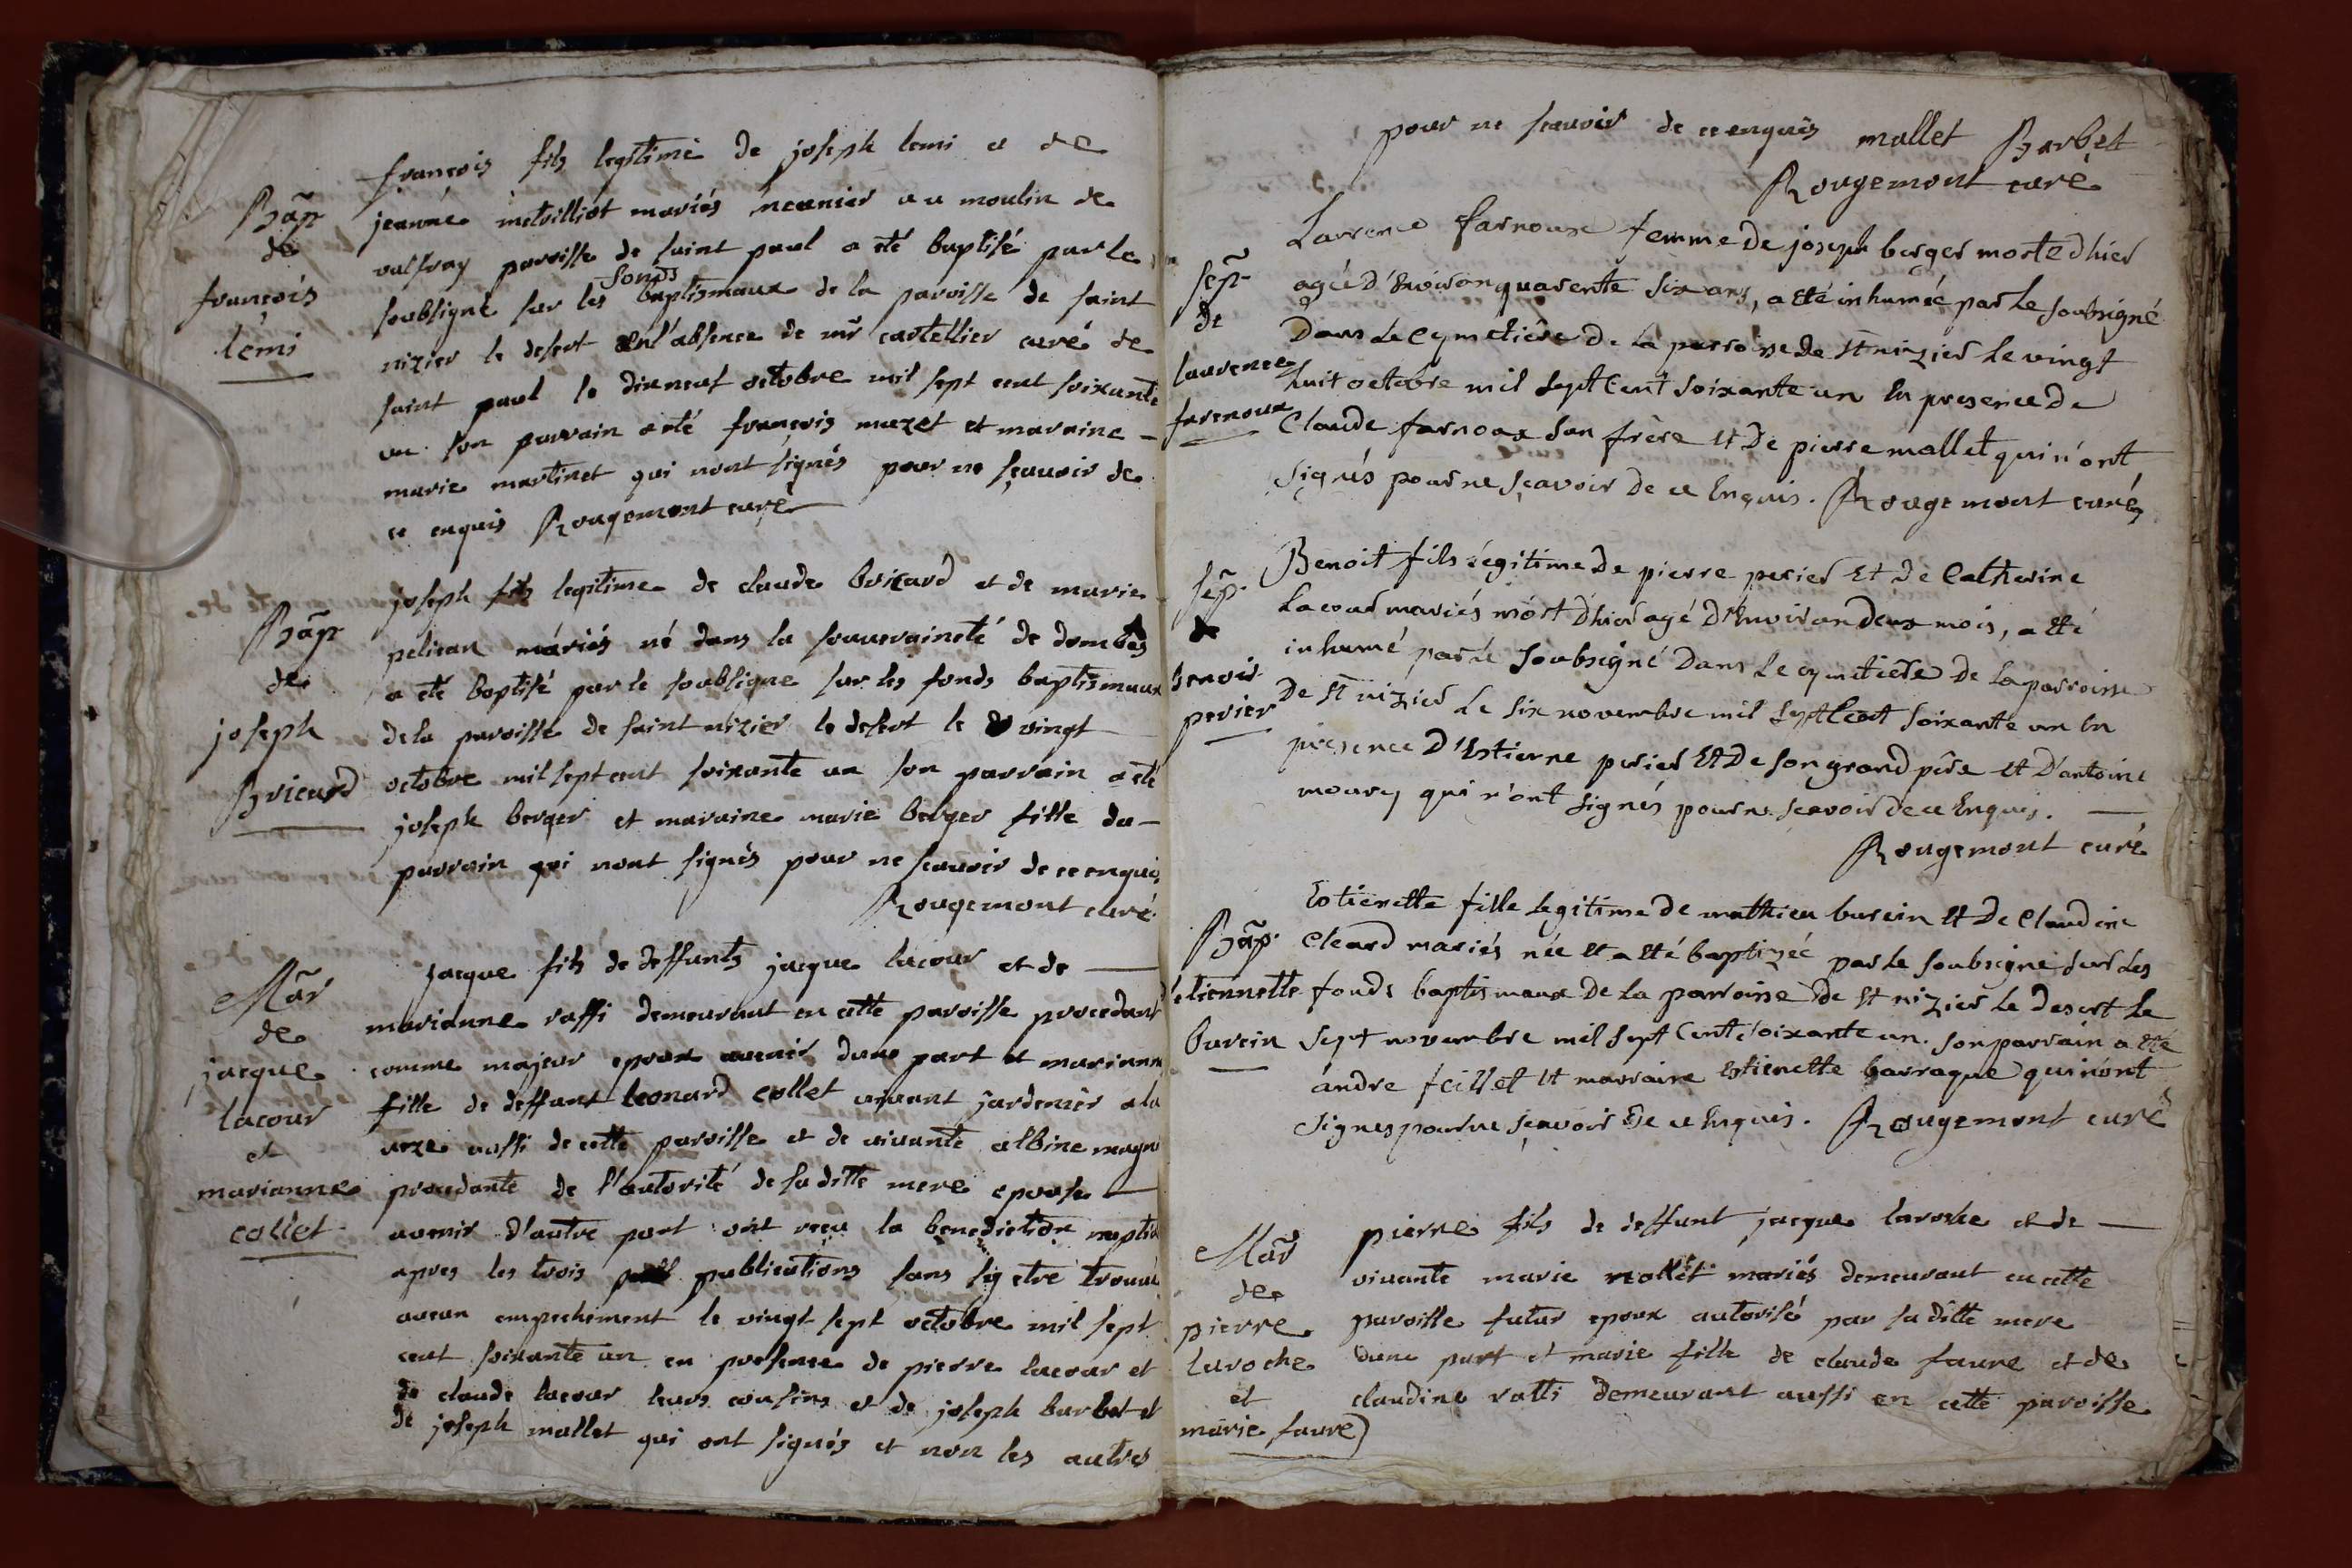 françois fils legitime de joseph lemi et de
Bap jeanne mariés meunier au moulin de
de valfray paroisse de saint paul a eté baptisé par le
françois soubsigné sur les fonds baptismaux de la paroisse de saint
lemi nizier le desert en l'absence de mr castellier curé de
saint paul le dixneuf octobre mil sept cent soixante
un son parrain a eté françois mazet et maraine
marie martinet qui n'ont signés pour ne sçavoir de
ce enquis Rougemont curé
joseph fils legitime de claude bricard et de marie
Bap pelican mariés né dans la souveraineté de dombes
de a eté baptisé par le soubsigne sur les fonds baptismaux
joseph de la paroisse de saint nizier le desert le vingt
Bricard octobre mil sept cent soixante un son parrain a eté
joseph berger et maraine marie berger fille du
parrain qui nont signés pour ne scavoir de ce enquis
Rougemont curé
jacque fils de deffunts jacque lacour et de
Mar marianne raffi demeurant en cette paroisse procedant
de comme majeur epoux avenir dune part et marianne
jacque fille de deffunt leonard collet vivant jardenier a la
lacour aussi de cette paroisse et de vivante albine
et
marianne procedante de l'autorité de sa ditte mere epouse
collet avenir d'autre part ont reçu la benediction
apres les trois publications sans sy etre trouvé
aucun empechement le vingt sept octobre mil sept
cent soixante un en presence de pierre lacour et
de claude lacour leurs cousins et de joseph barbet et
de joseph mallet qui ont signés et non les autres
pour ne scavoir de ce enquis mallet Barbet
Rougemont curé
Laurence farnoux femme de joseph berger morte d'hier
sep agée d'environ quarente six ans, a eté inhumée par le soubsigné
de Dans le cymetière de la parroisse de st nizier le vingt
laurence huit octobre mil sept cent soixante un en presence de
farnoux Claude farnoux son frère et de pierre mallet qui n'ont
signés pour ne sçavoir de ce enquis. Rougemont curé
Benoit fils legitime de pierre perier et de Catherine
sep. Lacour mariés mort d'hier agé d'environ deux mois, a eté
de inhumé par le soubsigné dans le cymetiere de la parroisse
benoit
perier De st nizier le six novembre mil sept cent soixante un en
presence d'Estienne perier et de son grand père et d'antoine
moury qui n'ont signés pour ne scavoir de ce enquis.
Rougemont curé
Estienette fille legitime de mathieu burein et de claudine
Bap. cleard mariés née et a eté baptizée par le soubsigné sur les
etiennette fonds baptismaux de la parroisse de st nizier le desert le
burein sept novembre mil sept cent soixante un. son parrain a eté
andre feillet et marraine estienette barraque qui n'ont
signes pour ne sçavoir de ce enquis. Rougemont curé
pierre fils de deffunt jacque laroche et de
Mar vivante marie mallet mariés demeurant en cette
de
pierre paroisse futur epoux autorisé par sa ditte mere
laroche dune part et marie fille de claude faure et de
et claudine ratti demeurant aussi en cette paroisse
marie faure